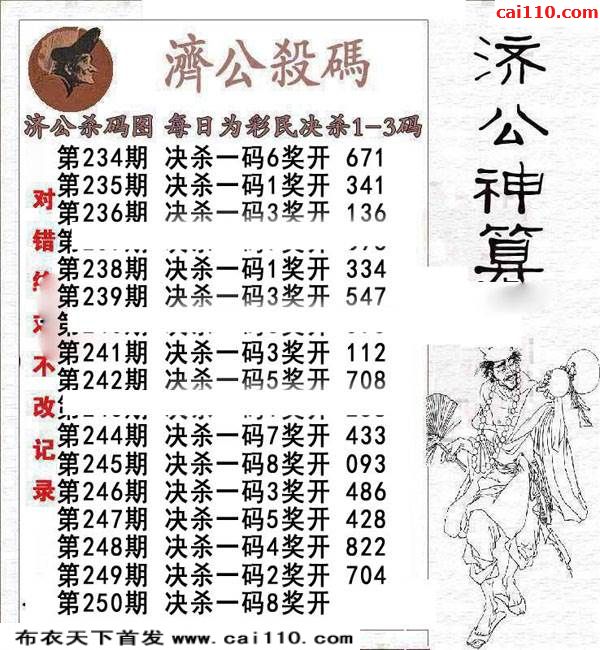 cai110.com
濟公殺碼
济公神算
济公杀码图 每日为彩民决杀1-3码
对错绝对不改记录
第234期 决杀一码6奖开 671
第235期 决杀一码1奖开 341
第236期 决杀一码3奖开 136
第238期 决杀一码1奖开 334
第239期 决杀一码3奖开 547
第241期 决杀一码3奖开 112
第242期 决杀一码5奖开 708
第244期 决杀一码7奖开 433
第245期 决杀一码8奖开 093
第246期 决杀一码3奖开 486
第247期 决杀一码5奖开 428
第248期 决杀一码4奖开 822
第249期 决杀一码2奖开 704
第250期 决杀一码8奖开
布衣天下首发 www.cai110.com